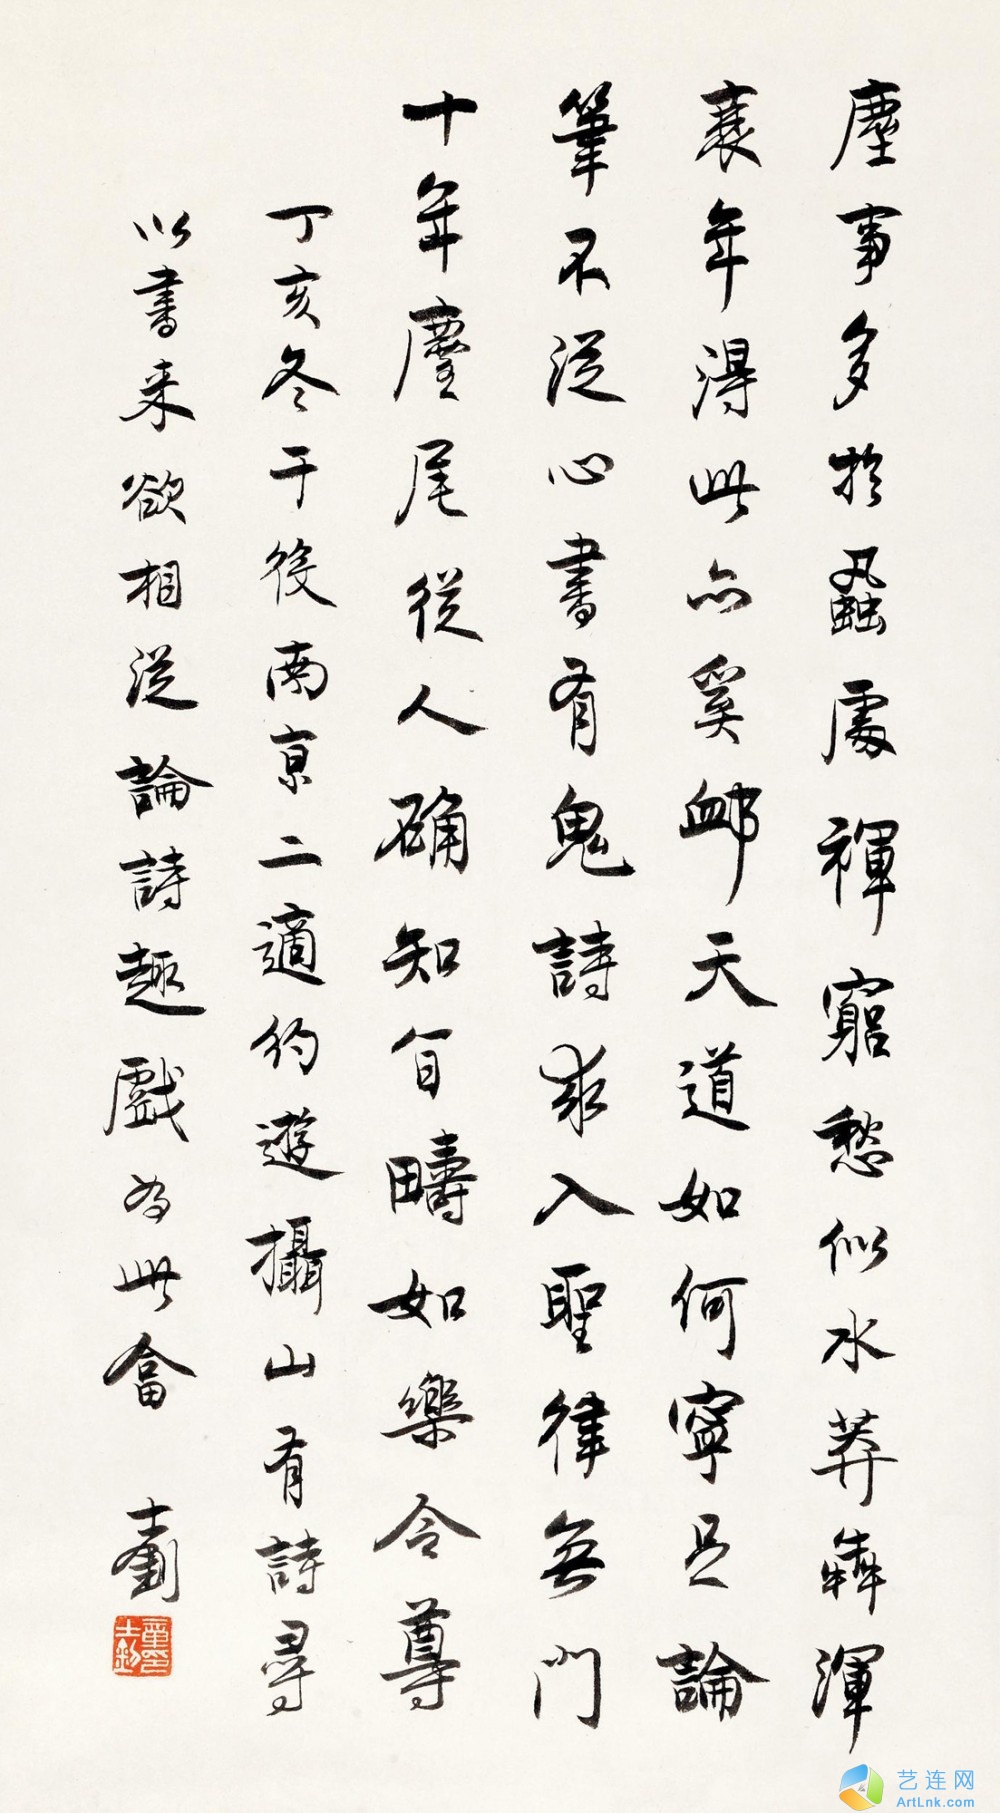 塵事多於蝨處褌窮愁似水莽犇渾
衰年得此亦奚卹天道如何寧足論
筆不從心書有鬼詩求入聖律無門
十年麈尾從人确知旨疇如樂令尊
丁亥冬于後南京二適約遊攝山有詩尋
以書来欲相從論詩趣戲為此畣 士釗
艺连网
ArtLnk.com